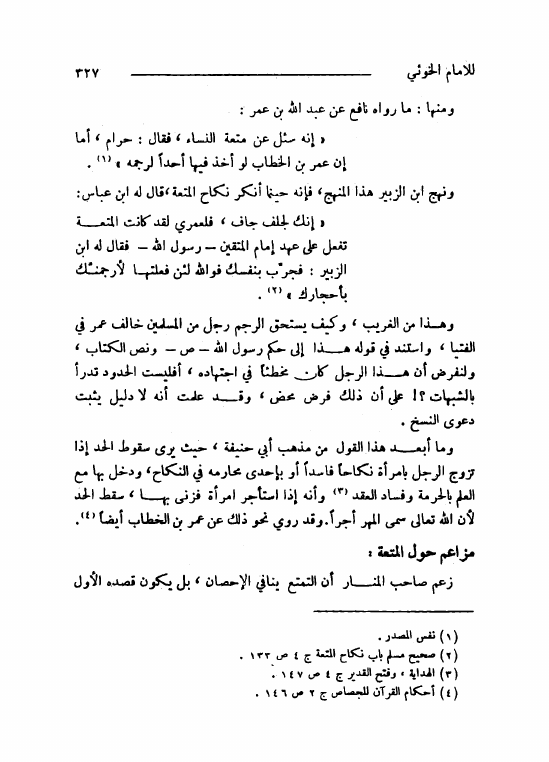 للامام الخوئي ٣٢٧
ومنها : ما رواه نافع عن عبد الله بن عمر :
« إنه سئل عن متعة النساء ، فقال : حرام ، أما
إن عمر بن الخطاب لو أخذ فيها أحداً لرجمه » (١) .
ونهج ابن الزبير هذا المنهج، فإنه حينما أنكر نكاح المتعة،قال له ابن عباس:
« إنك لجلف جاف ، فلعمري لقد كانت المتعـــة
تفعل على عهد إمام المتقين – رسول الله – فقال له ابن
الزبير : فجرّب بنفسك فوالله لئن فعلتهــا لأرجمنّــك
بأحجارك » (٢) .
وهــذا من الغريب ، وكيف يستحق الرجم رجل من المسلمين خالف عمر في
الفتيا ، واستند في قوله هـــذا إلى حكم رسول الله – ص – ونص الكتاب ،
ولنفرض أن هـــذا الرجل كان مخطئاً في اجتهاده ، أفليست الحدود تدرأ
بالشبهات ؟! على أن ذلك فرض محض ، وقـــد علمت أنه لا دليل يثبت
دعوى النسخ .
وما أبعـــد هذا القول من مذهب أبي حنيفة ، حيث يرى سقوط الحد إذا
تزوج الرجل بامرأة نكاحاً فاسداً أو بإحدى محارمه في النكاح، ودخل بها مع
العلم بالحرمة وفساد العقد (٣) وأنه إذا استأجر امرأة فزنى بهــا ، سقط الحد
لأن الله تعالى سمى المهر أجراً.وقد روي نحو ذلك عن عمر بن الخطاب أيضاً (٤).
مزاعم حول المتعة :
زعم صاحب المنـــار أن التمتع ينافي الإحصان ، بل يكون قصده الأول
(١) نفس المصدر .
(٢) صحيح مسلم باب نكاح المتعة ج ٤ ص ١٣٣ .
(٣) الهداية ، وفتح القدير ج ٤ ص ١٤٧ .
(٤) أحكام القرآن للجصاص ج ٢ ص ١٤٦ .